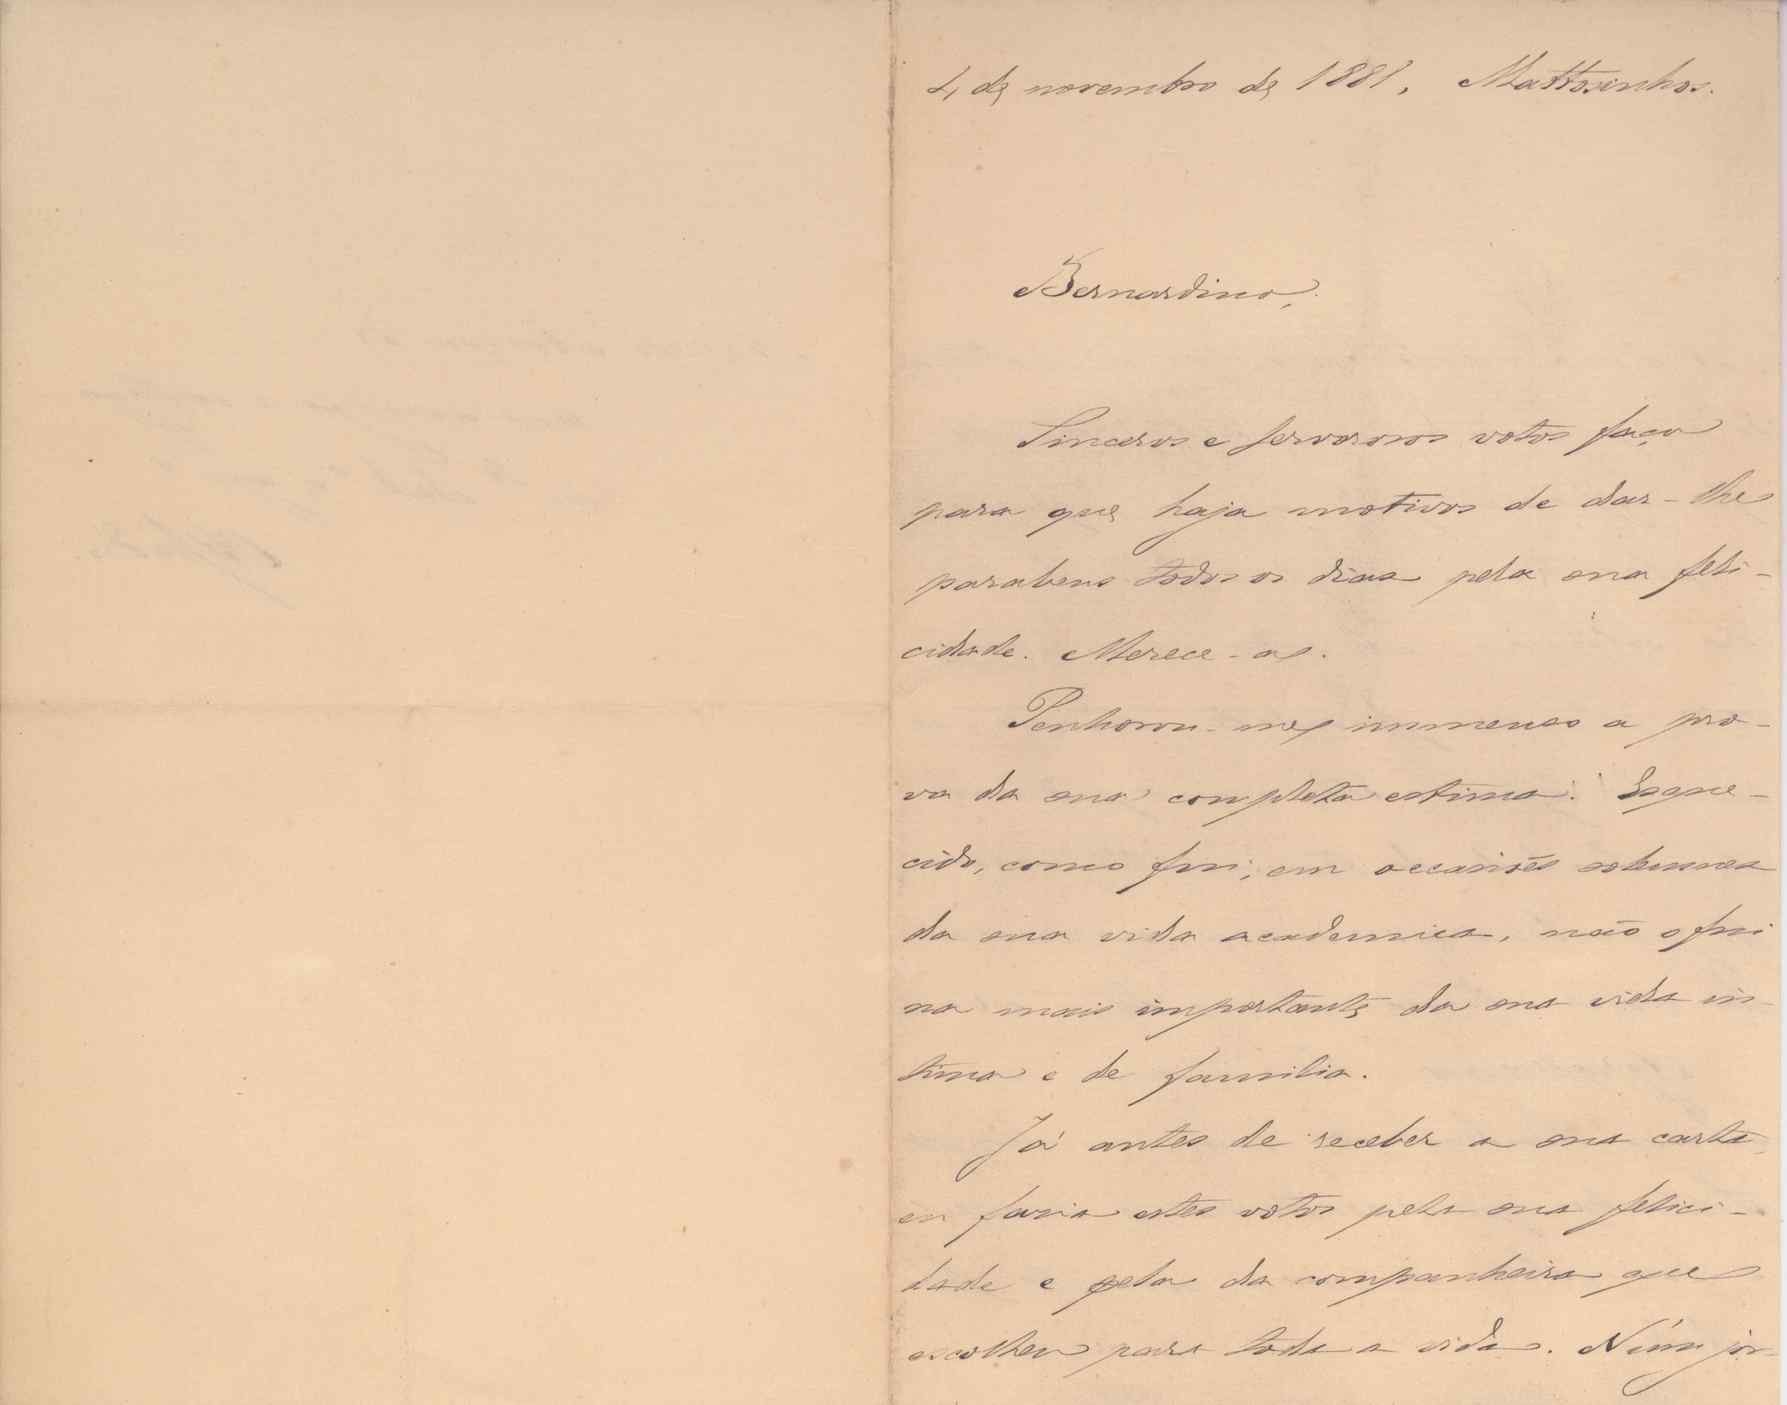 4 de novembro de 1881, Mattosinhos.
Bernardino,
Sinceros e fervorosos votos faço
para que haja motivos de dar-lhe
parabens todos os dias pela sua feli-
cidade. Merece-a.
Penhorou-me immenso a pro-
va da sua completa estima. Esque-
cido, como fui, em occasiões solemnes
da sua vida academica, não o fui
na mais importante da sua vida in-
tima e de familia.
Já antes de receber a sua carta,
eu fazia estes votos pela sua felici-
dade e pela da companheira que
escolheu para toda a vida. N'um jor-